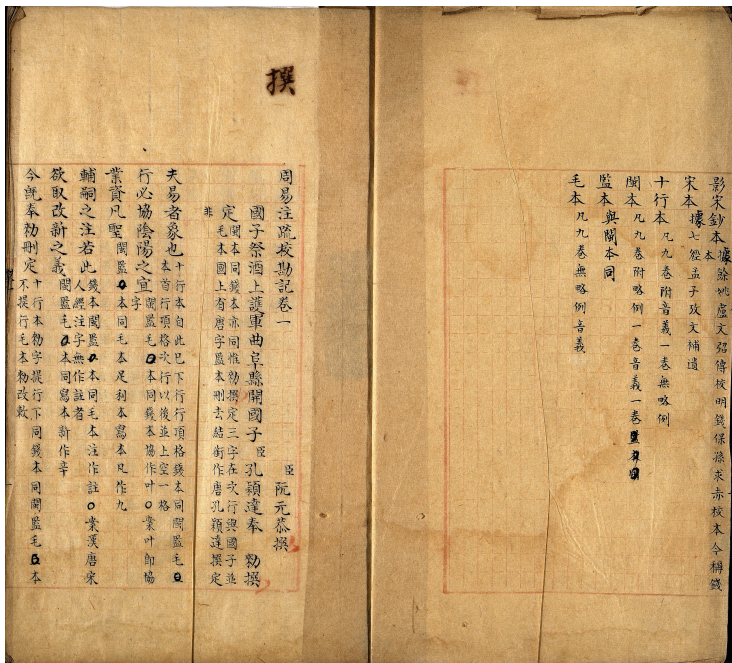 影宋鈔本據餘姚盧文弨傳校明錢保孫求赤校本今稱錢
本
宋本據七經孟子攷文補遺
十行本凡九卷附音義一卷無略例
閩本凡九卷附略例一卷音義一卷
監本與閩本同
毛本凡九卷無略例音義
撰
周易注疏校勘記卷一
臣阮元恭撰
國子祭酒上護軍曲阜縣開國子臣孔穎達奉 勅撰
定閩本同錢本亦同惟勅撰定三字在次行與國子並
毛本國上有唐字監本刪去結銜作唐孔穎達撰定
非
夫易者象也十行本自此已下行行頂格錢本同閩監毛
本首行頂格次行以後並上空一格
行必協陰陽之宜閩監毛本同錢本協作叶○案叶卽協
字
業資凡聖閩監本同毛本足利本寫本凡作九
輔嗣之注若此錢本閩監本同毛本注作註○案漢唐宋
人經注字無作註者
欲取改新之義閩監毛本同寫本新作辛
今旣奉勅刪定十行本勅字提行下同錢本同閩監毛本
不提行毛本勅改敕